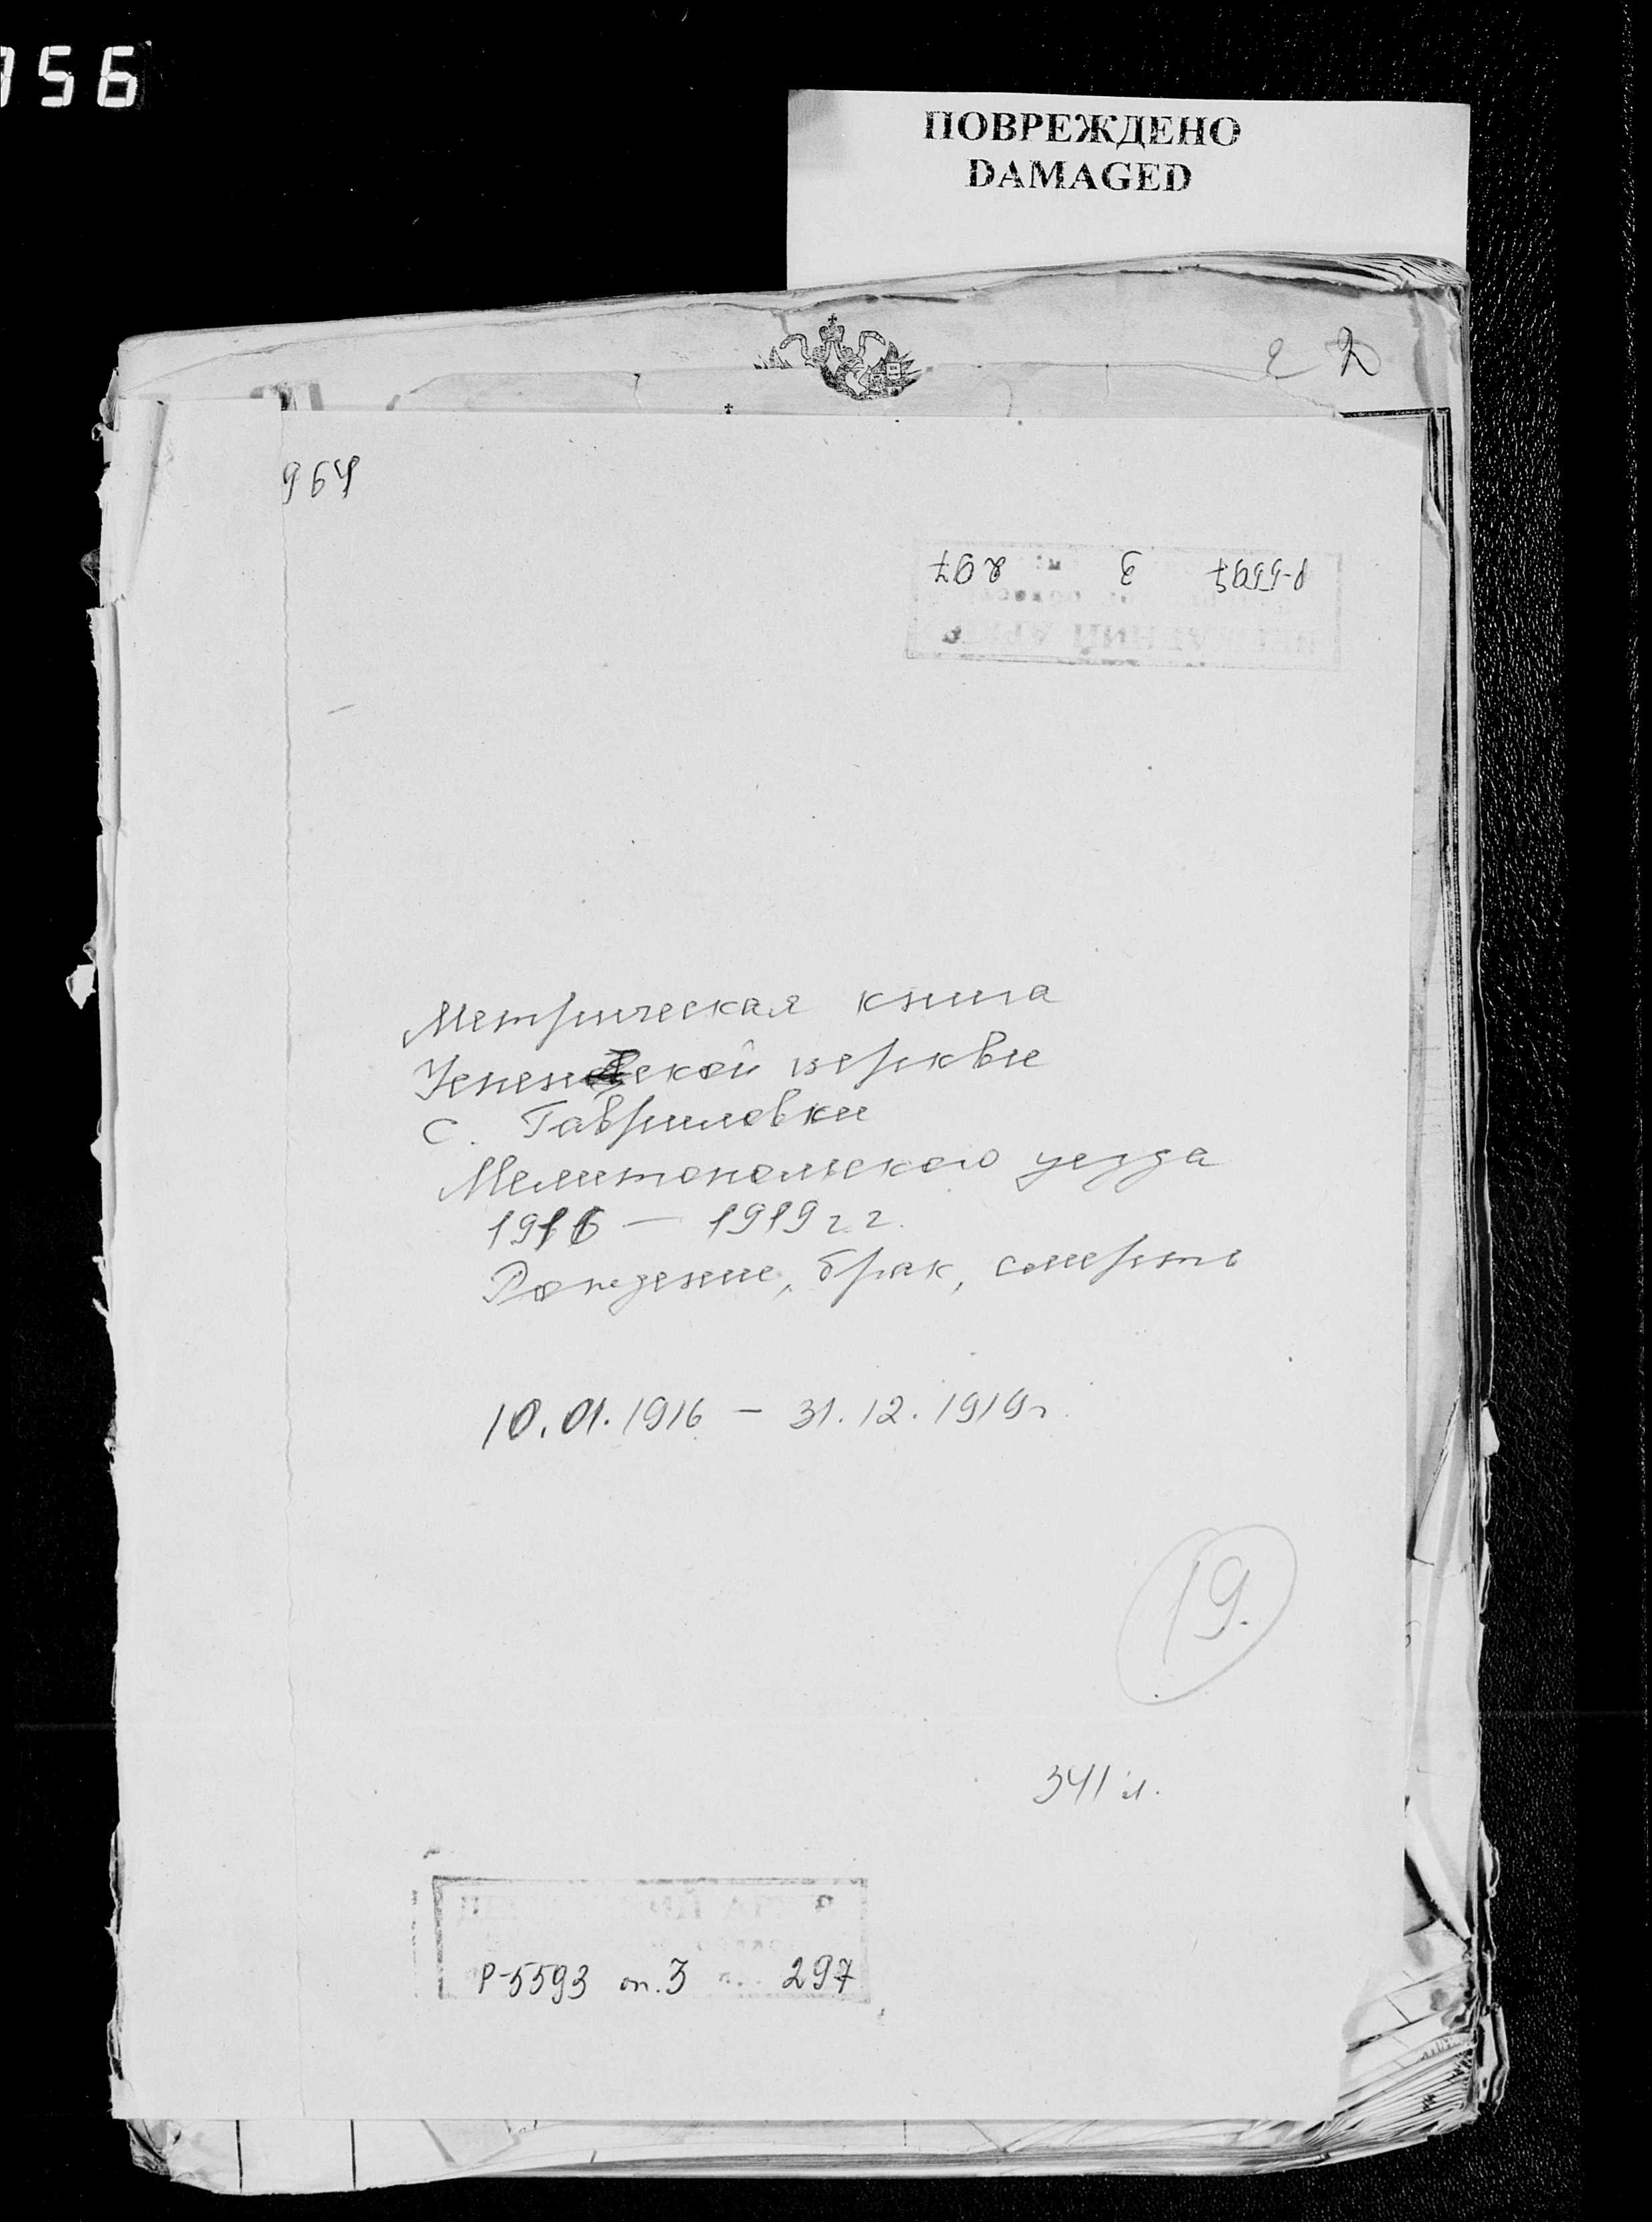 956
ПОВРЕЖДЕНО
DAMAGED
2 2
964
Р-5597 3 297
Метрическая книга
Успенской церкви
с. Гавриловки
Мелитопольского уезда
1916 — 1919 г г.
Рождение, брак, смерть
10.01.1916 – 31.12.1919г.
19.
341 л.
Р-5593 оп. 3 297